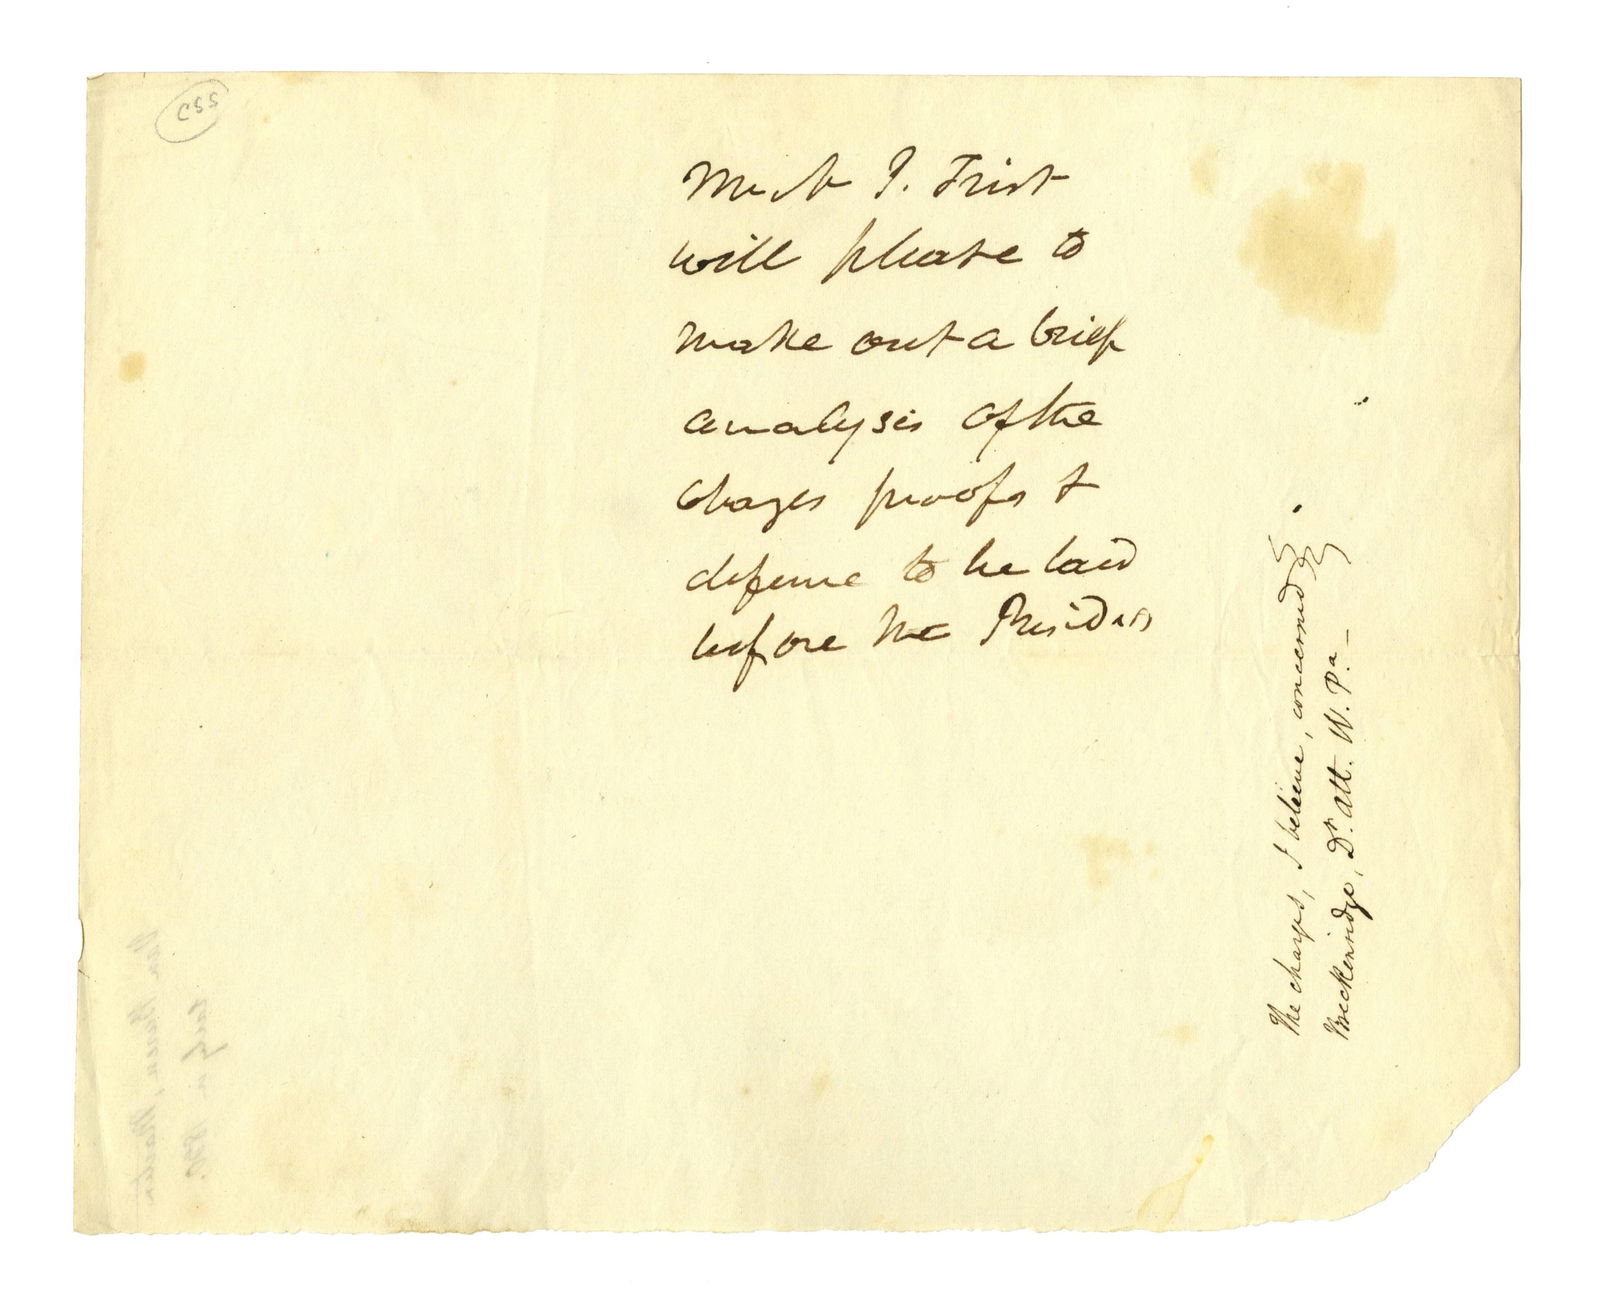 Mr N P. Trist
will please to
make out a brief
analysis of the
charges proofs &
defense to be laid
before the President
The charges, I believe, concerned
Breckenridge, Dr. att. W. Pa. –
Van Buren, Martin
early in 1830.